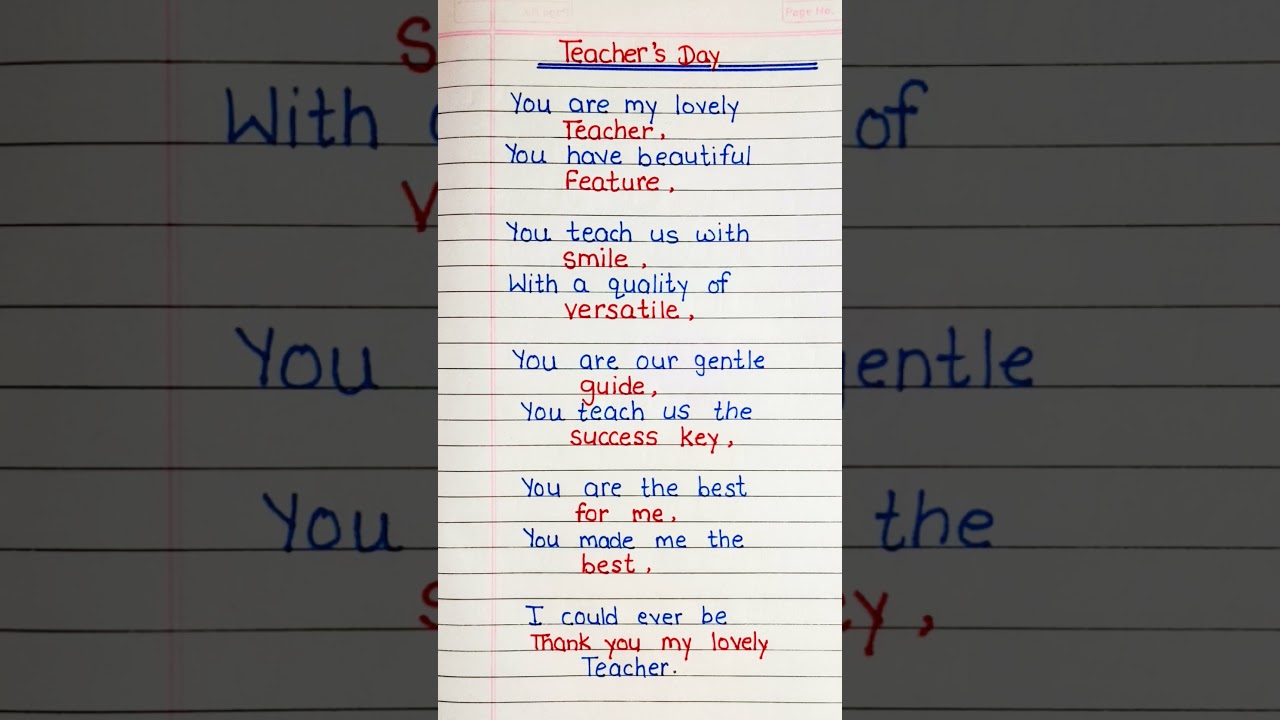 Page No.
Teacher's Day
You are my lovely
Teacher,
You have beautiful
Feature,
You teach us with
smile,
With a quality of
versatile,
You are our gentle
guide,
You teach us the
success key,
You are the best
for me,
You made me the
best,
I could ever be
Thank you my lovely
Teacher.